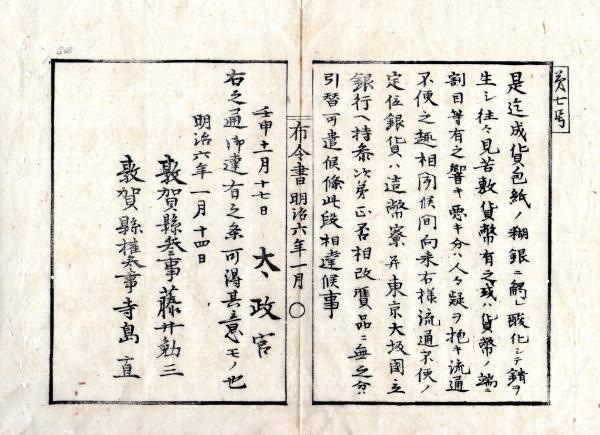 第七号
是迄成貨色紙ノ糊銀ニ觸レ酸化シテ錆ヲ
生シ往々見苦敷貨幣有之或ハ貨幣ノ端ニ
割目等有之響キ悪キ分ハ人々疑ヲ抱キ流通
不便之趣相聞候間向来右様流通不便ノ
定位銀貨ハ造幣寮并東京大坂国立
銀行ヘ持参次第正否相改贋品ニ無之分ハ
引替可遣候條此段相達候事
布令書 明治六年一月 〇
壬申十一月十七日 大政官
右之通御達有之条可得其意モノ也
明治六年一月十四日
敦賀縣参事藤井勉三
敦賀縣権参事寺島直